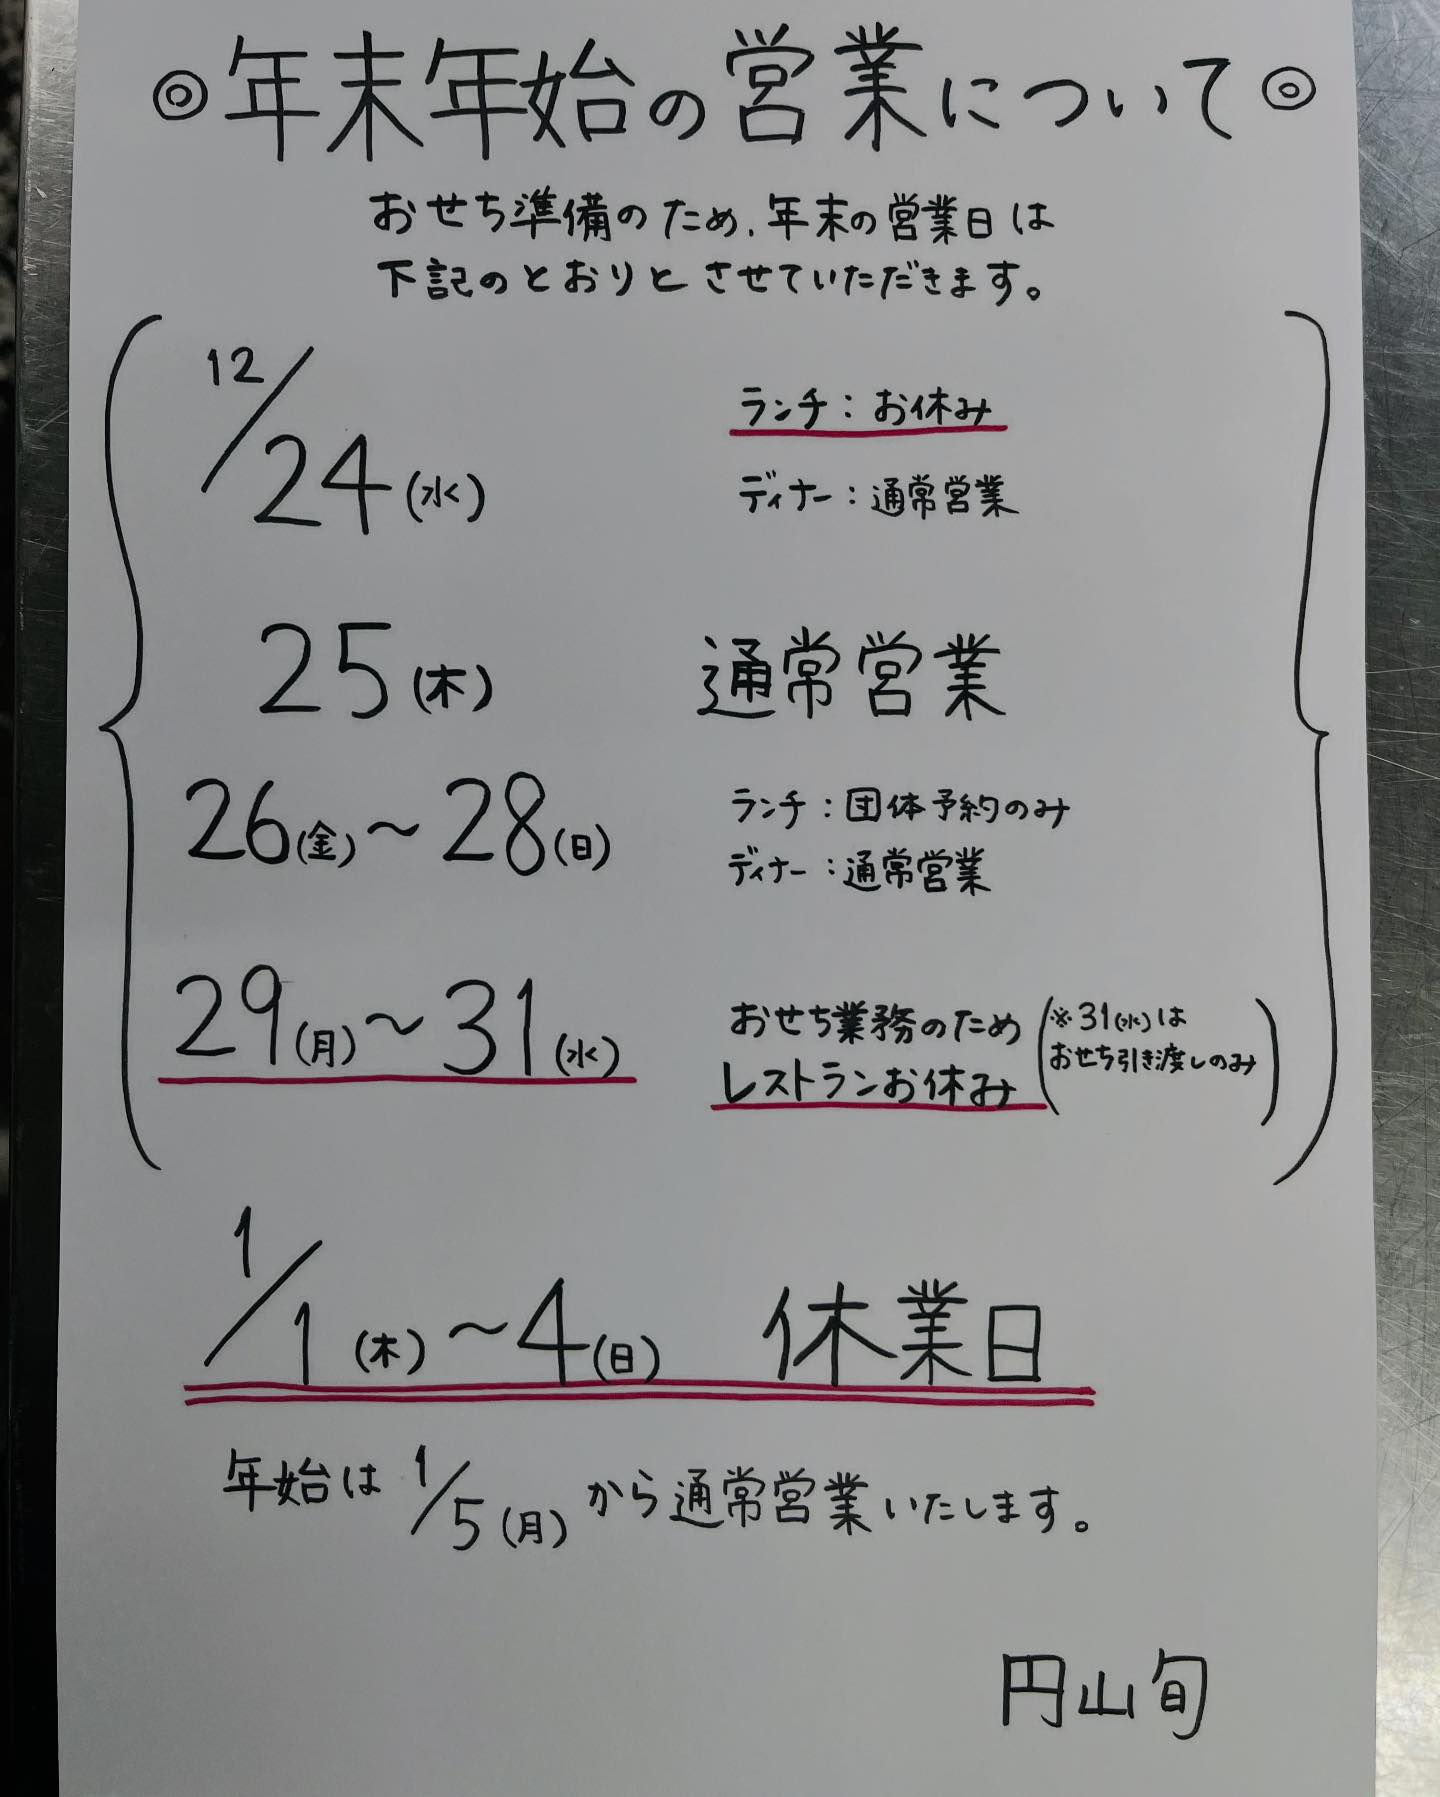 ◎年末年始の営業について◎
おせち準備のため、年末の営業日は
下記のとおりとさせていただきます。
12/24(水) ランチ：お休み
ディナー：通常営業
25(木) 通常営業
26(金)〜28(日) ランチ：団体予約のみ
ディナー：通常営業
29(月)〜31(水) おせち業務のため (※31(水)は
レストランお休み おせち引き渡しのみ)
1/1(木)〜4(日) 休業日
年始は1/5(月)から通常営業いたします。
円山旬